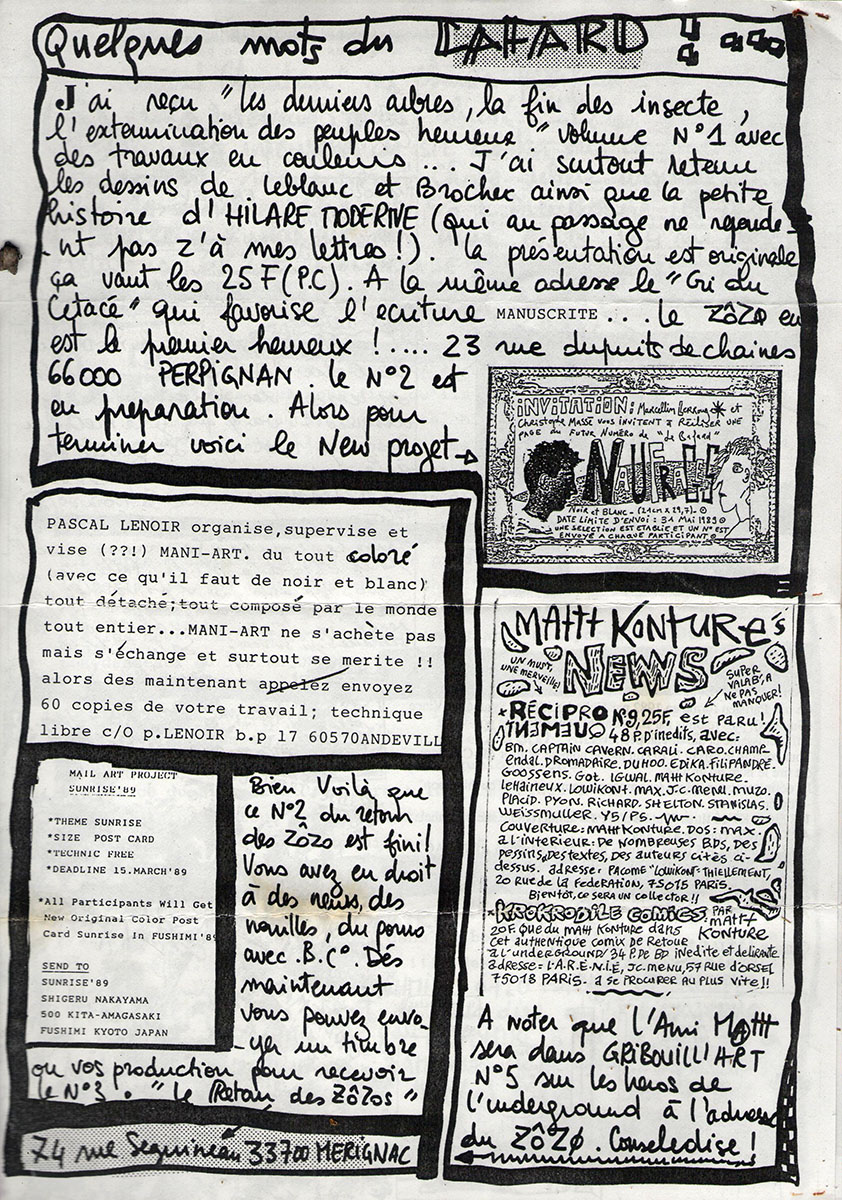 Quelques mots du CAHARD :
J'ai reçu "les derniers arbres, la fin des insecte,
l'extermination des peuples heureux" volume N°1 avec
des travaux en couleurs ... J'ai surtout retenu
les dessins de Leblanc et Brochec ainsi que la petite
histoire d'HILARE MODERNE (qui au passage ne reponde-
-nt pas z'à mes lettres!). La présentation est originale
ça vaut les 25F (P.C). A la même adresse le "Cri du
Cetacé" qui favorise l'ecriture MANUSCRITE ... le ZôZØ en
est le premier heureux !.... 23 rue dupuits de chaines
66000 PERPIGNAN. le N°2 est
en preparation. Alors pour
terminer voici le New projet
INVITATION: Marcellin et
Christophe Massé vous invitent à réaliser une
page du futur numéro de "Le Bâfard"
NAUFRAGES
Noir et Blanc - (21cm x 29,7).
DATE LIMITE D'ENVOI : 31 MAI 1989
UNE SELECTION EST ETABLIE ET UN N° EST
ENVOYÉ A CHAQUE PARTICIPANT
PASCAL LENOIR organise,supervise et
vise (??!) MANI-ART. du tout coloré
(avec ce qu'il faut de noir et blanc)
tout détaché;tout composé par le monde
tout entier...MANI-ART ne s'achète pas
mais s'échange et surtout se merite !!
alors des maintenant appelez envoyez
60 copies de votre travail; technique
libre c/O p.LENOIR b.p 17 60570ANDEVILL
MAIL ART PROJECT
SUNRISE'89
*THEME SUNRISE
*SIZE POST CARD
*TECHNIC FREE
*DEADLINE 15.MARCH'89
*All Participants Will Get
New Original Color Post
Card Sunrise In FUSHIMI'89
SEND TO
SUNRISE'89
SHIGERU NAKAYAMA
500 KITA-AMAGASAKI
FUSHIMI KYOTO JAPAN
Bien Voilà que
ce N°2 du retour
des Zôzo est fini!
Vous avez eu droit
à des news, des
nouilles, du porno
avec .B.C°. Dés
maintenant
vous pouvez envo-
-yer un timbre
ou vos production pour recevoir
le N°3. "le Retour des Zôzos"
74 rue Seguineau 33700 MERIGNAC
MAttt KONTURE's
NEWS
UN MUST,
UNE MERVEILLE!
SUPER
VALAB', A
NE PAS
MANQUER!
*RÉCIPRO N°9, 25F, est paru!
48 P. D'inedifs, avec:
BM. CAPTAIN CAVERN. CARALI. CARO. CHAMP
endal. DROMADAIRE. DU HOO. EDIKA. FiLIPANDRÉ.
GOOSSENS. Got. IGWAL. MAttt KONTURE.
LeHaineux. LOWIKONT. MAX. J.C. MENU. MUZO.
PLACID. PYON. RICHARD. SHELTON. STANISLAS.
WEISSMULLER. Y5/P5.
COUVERTURE: MAttt KONTURE. DOS: MAX.
A L'INTERIEUR: DE NOMBREUSES BDS, DES
DESSINS, DES TEXTES, DES AUTEURS CITÉS CI-
DESSUS. ADRESSE: PACOME "LOWIKONT" THIELLEMENT,
20 RUE DE LA FEDERATION, 75015 PARIS.
Bientôt, ce sera un collector!!
*KROKRODILE COMICS PAR
MAttt
KONTURE
20F. que du MAttt KONTURE DANS
CET AUTHENTIQUE COMIX DE RETOUR
A L'UNDERGROUND/ 34 P. DE BD INEDITE ET DELIRANTE
ADRESSE: L'A.R.E.N.I.E, J.C. MENU, 57 RUE D'ORSEL
75018 PARIS. A SE PROCURER AU PLUS VITE!!
A noter que l'Ami MAttt
sera dans GRIBOUILL'ART
N°5 sur les heros de
l'underground à l'adresse
du ZôZØ.